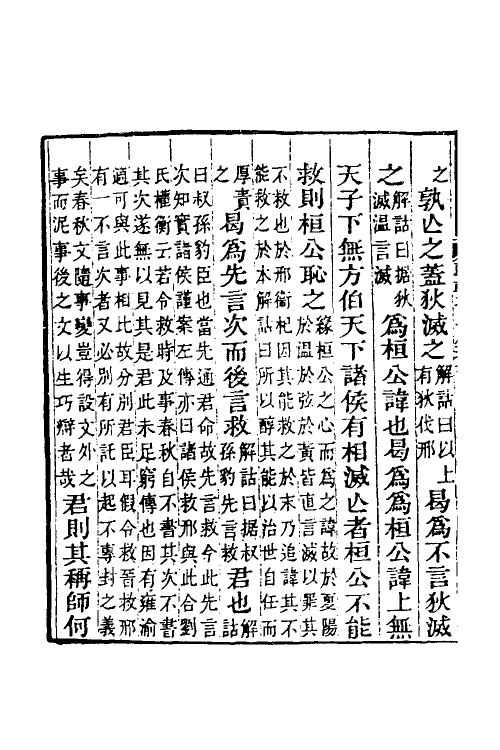 之
孰亾之蓋狄滅之
解詁曰以上
有狄伐邢
曷爲不言狄滅
之
解詁曰据狄
滅温言滅
爲桓公諱也曷爲爲桓公諱上無
天子下無方伯天下諸侯有相滅亾者桓公不能
救則桓公恥之
緣桓公之心而爲之諱故於夏陽
於温於弦於黃皆直言滅以罪其
不救也於邢衛杞因其能救之於末乃追諱其不
能救之於本解詁曰所以醇其能以治世自任而
厚責
之
曷爲先言次而後言救
解詁曰据叔
孫豹先言救
君也
解
詁
曰叔孫豹臣也當先通君命故先言救今此先言
次知實諸侯謹案左傳亦曰諸侯救邢與此合劉
氏權衡云若令救時及事春秋自不書其次不書
其次遂無以見其是君此未足窮傳也因有雍渝
適可與此事相比故分別君臣耳假令救晉救邢
有一不言次者又必別有所託以起不專封之義
矣春秋文隨事變豈得設文外之
事而泥事後之文以生巧辯者哉
君則其稱師何